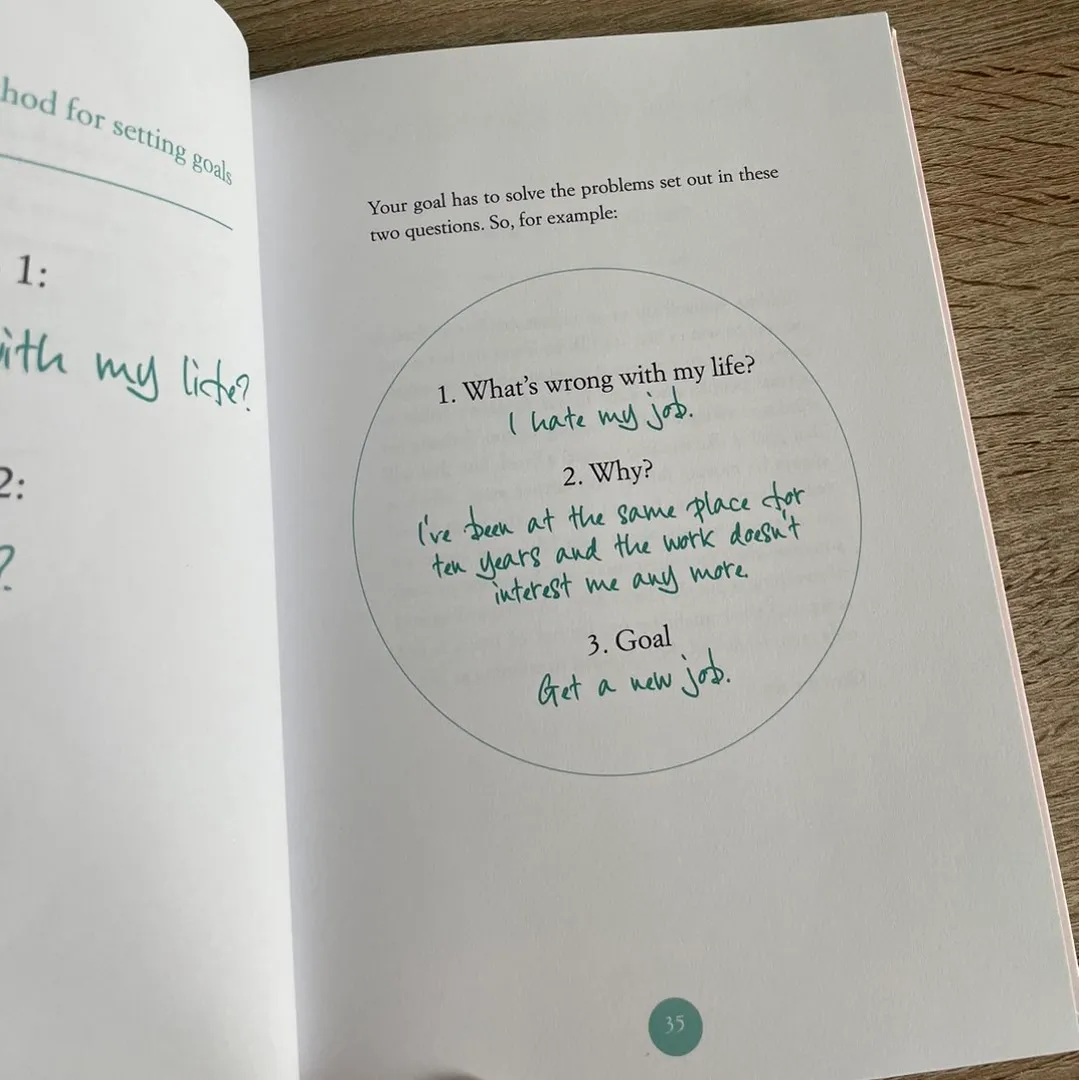 hod for setting goals
1:
ith my life?
2:
?
Your goal has to solve the problems set out in these
two questions. So, for example:
1. What's wrong with my life?
I hate my job.
2. Why?
I've been at the same place for
ten years and the work doesn't
interest me any more.
3. Goal
Get a new job.
35